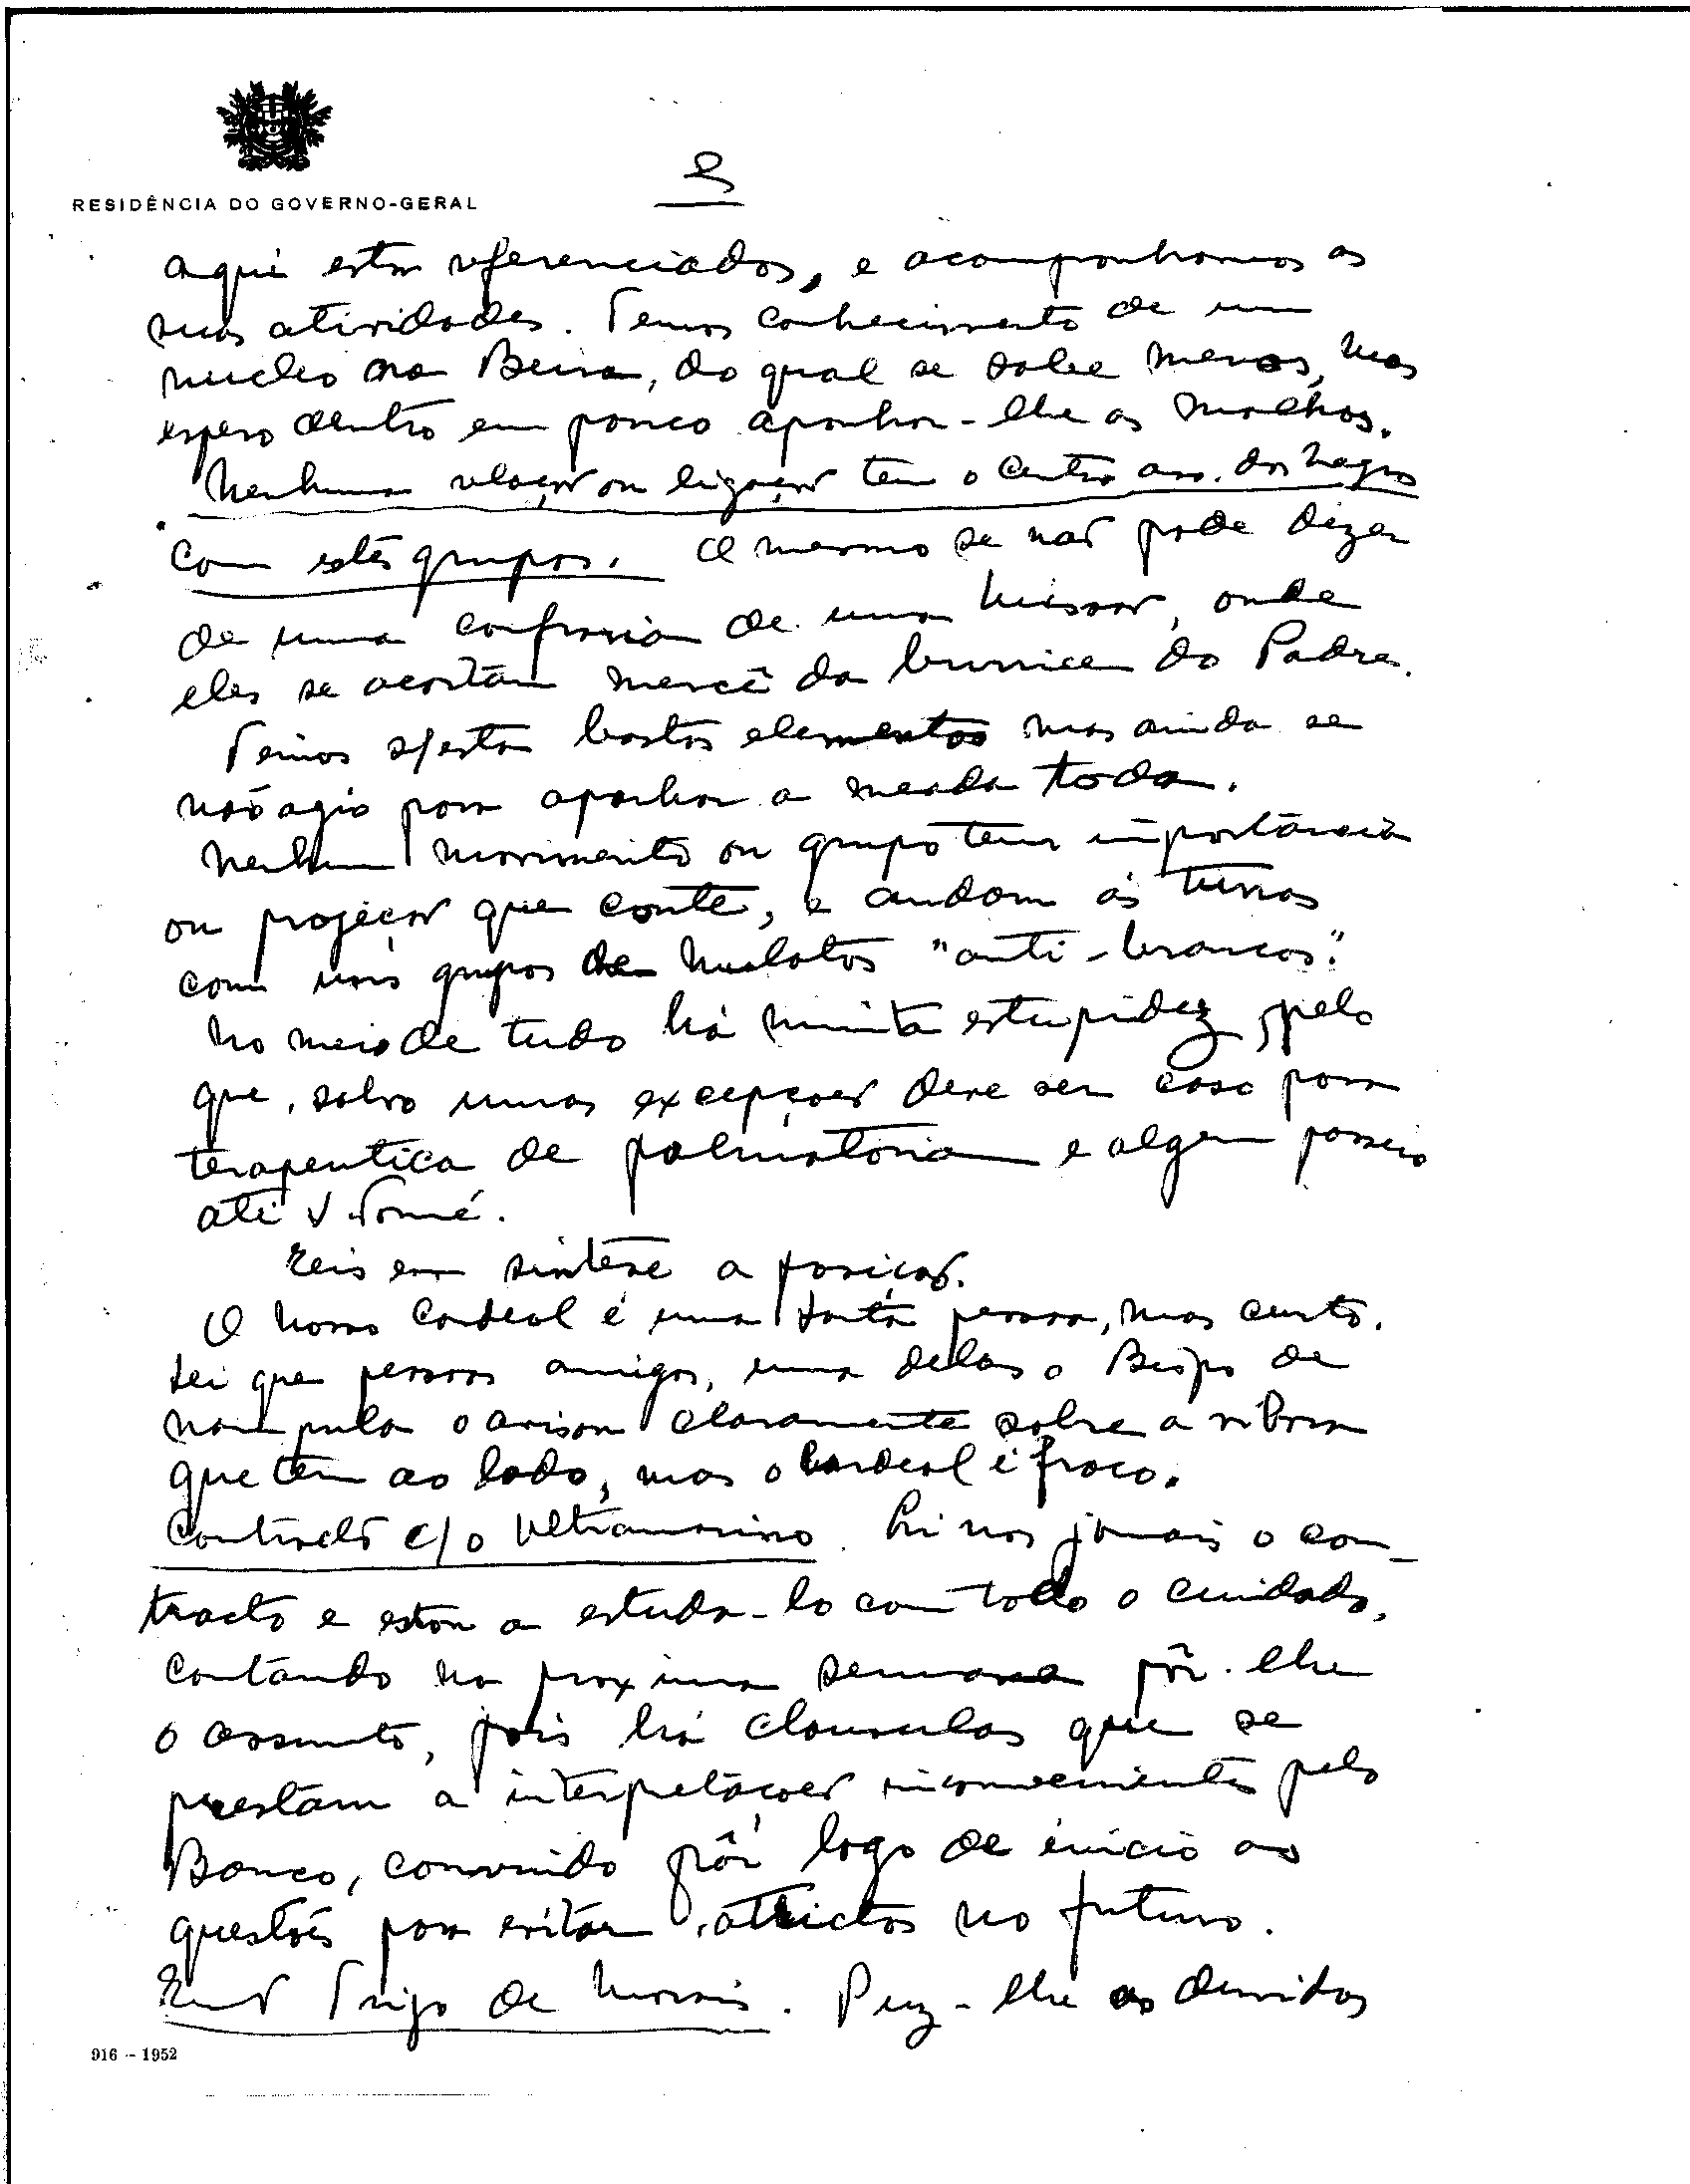 RESIDÊNCIA DO GOVERNO-GERAL
2
aqui estão referenciados, e acompanhamos as
suas atividades. Temos conhecimento de um
nucleo na Beira, do qual se sabe menos, mas
espero dentro em pouco apanhar-lhe os
Nenhuma relação ou ligação tem o Centro ass. dos Negros
com estes grupos. O mesmo se não pode dizer
de uma confraria de uma missão, onde
eles se acoitam mercê da burrice do Padre.
Temos s/esta bastos elementos mas ainda se
não agio para apanhar a meada toda.
Nenhum movimento ou grupo tem importância
ou projeção que conte, e andam ás turras
com uns grupos de mulatos "anti-brancos".
No meio de tudo há muita estupidez, pelo
que, salvo umas excepções deve ser caso para
terapeutica de palmatoria e algum passeio
até S. Tomé.
Eis em sintese a posição.
O nosso Cardeal é uma santa pessoa, mas curto.
Sei que pessoas amigas, uma delas o Bispo de
Nampula o avisou claramente sobre a vibora
que tem ao lado, mas o Cardeal é fraco.
Contracto c/o Ultramarino. Li nos jornais o con-
tracto e estou a estuda-lo com todo o cuidado,
contando na proxima semana pôr-lhe
o assunto, pois há clausulas que se
prestam a interpetações inconvenientes pelo
Banco, convindo pôr logo de inicio as
questões para evitar atrictos no futuro.
Trigo de Morais. Puz-lhe as duvidas
916 - 1952